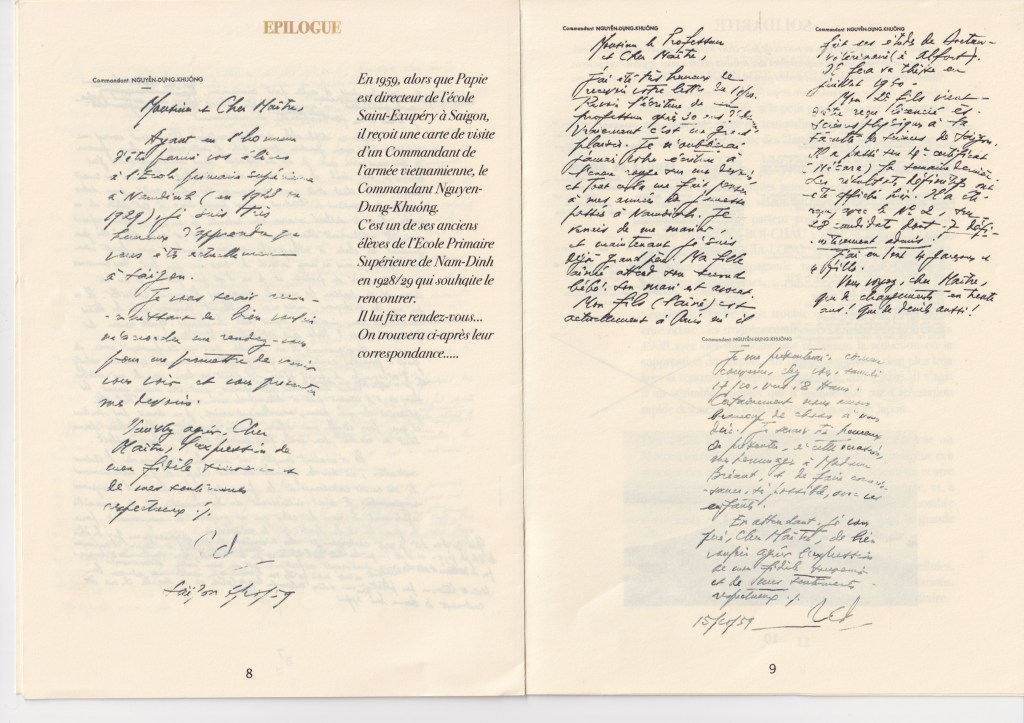 EPILOGUE
Commandant NGUYÊN-DUNG-KHUÔNG
Monsieur et Cher Maître,
Ayant eu l'honneur
d'être parmi vos élèves
à l'Ecole primaire supérieure
à Namdinh (en 1928 ou
1929), je suis très
heureux d'apprendre que
vous êtes actuellement
à Saigon.
Je vous serais recon-
naissant de bien vouloir
m'accorder un rendez-vous
pour me permettre de venir
vous voir et vous présenter
mes devoirs.
Veuillez agréer, Cher
Maître, l'expression de
mon fidèle souvenir et
de mes sentiments
respectueux ./.
Saigon
En 1959, alors que Papie
est directeur de l'école
Saint-Exupéry à Saigon,
il reçoit une carte de visite
d'un Commandant de
l'armée vietnamienne, le
Commandant Nguyen-
Dung-Khuông.
C'est un de ses anciens
élèves de l'Ecole Primaire
Supérieure de Nam-Dinh
en 1928/29 qui souhaite le
rencontrer.
Il lui fixe rendez-vous...
On trouvera ci-après leur
correspondance.....
8
Commandant NGUYÊN-DUNG-KHUÔNG
Monsieur le Professeur
et Cher Maître,
J'ai été très heureux de
recevoir votre lettre du
l'écriture de son
professeur après 30 ans
Vraiment c'est un grand
plaisir. Je n'oublierai
jamais votre écriture à
l'encre rouge sur mes devoirs,
et tout cela me fait penser
à mes années de jeunesse
passées à Namdinh. Je
venais de me marier,
et maintenant je suis
déjà grand père. Ma fille
aînée attend son second
bébé: son mari est avocat.
Mon fils est
actuellement à Paris où il
Commandant NGUYÊN-DUNG-KHUÔNG
fait ses études de Docteur-
vétérinaire (à Alfort).
Il fera sa thèse en
juillet 1960.
Mon 2è fils vient
d'être reçu licencié ès-
Sciences physiques à la
Faculté des sciences de Saigon.
Il a passé son 4è certificat
la semaine dernière.
Les résultats définitifs ont
été affichés hier. Il a été
reçu avec le No 2, sur
28 candidats dont 7 défi-
nitivement admis!
J'ai en tout 4 garçons et
4 filles.
Vous voyez, cher Maître,
que de changements en trente
ans! que de devoirs aussi!
Commandant NGUYÊN-DUNG-KHUÔNG
Je me présenterai comme
convenu, chez vous, samedi
17/10, vers 18 heures.
Certainement nous aurons
beaucoup de choses à nous
dire. Je serais très heureux
de présenter, à cette occasion,
mes hommages à Madame
Bréant, et de faire connais-
sance, si possible, avec vos
enfants.
En attendant, je vous
prie, Cher Maître, de bien
vouloir agréer l'expression
de mon fidèle souvenir
et de mes sentiments
respectueux ./.
15/10/59
9